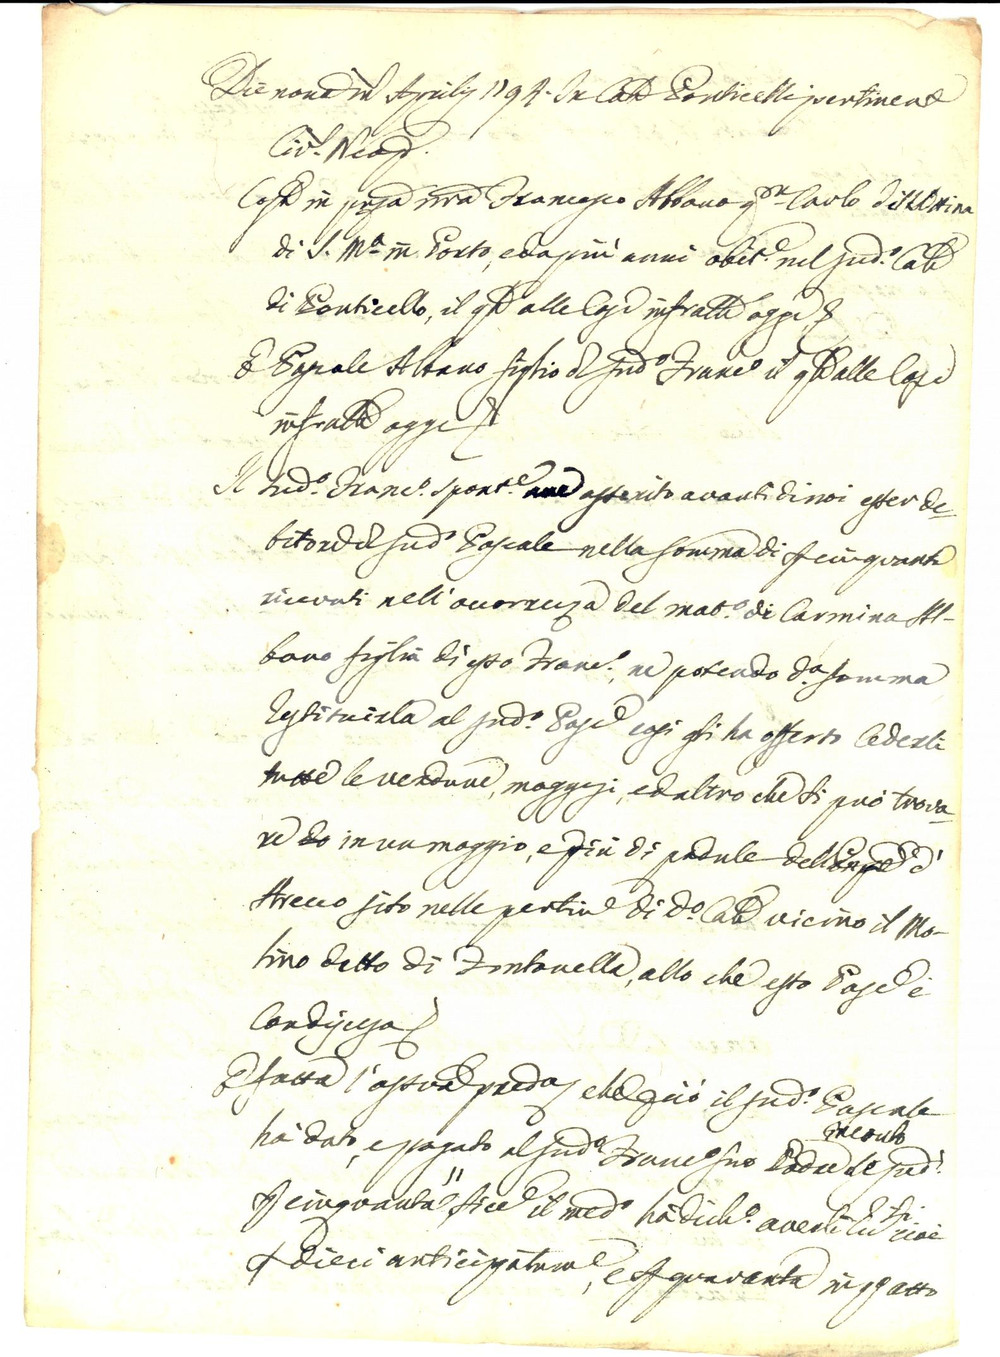 Die nona m Aprilis 1794. In Cas Ponticelli pertinen
Civ. Neap.
Cost in pnza nra Francesco Albano qm Carlo dell'Ottina
di S. Ma in Porto, e da più anni abit.e nel sud.o Cas
di Ponticello, il q alle Cose infratte agge
E Pascale Albano figlio d sud.o Franc.o il q alle Cose
infratte agge
Il sud.o Franc.o spont.e asserito avanti di noi esser de-
bitore d sud.o Pascale nella somma di cinquanta
ricevuti nell'occorrenza del mat.o di Carmina Al-
bano figlia di esso Franc.o, ne potendo d.a somma
restituirla al sud.o Pasc.e così gli ha offerto cederli
tutte le verdure, maggesi, ed altro che si può trova-
re in un moggio, e più di padule dell
Arecco sito nelle pertin di d.o Cas vicino il Mo-
lino detto di Fontanella, allo che esso Pasc.e è
Condisceso
E fatta l'asserva preda, che perciò il sud.o Pascale
ha dato, e pagato al sud.o Franc.o suo Padre le sud.i
cinquanta, sicc.e il med.o ha dich.o averli cioè
dieci anticipatam.e, e quaranta in q atto